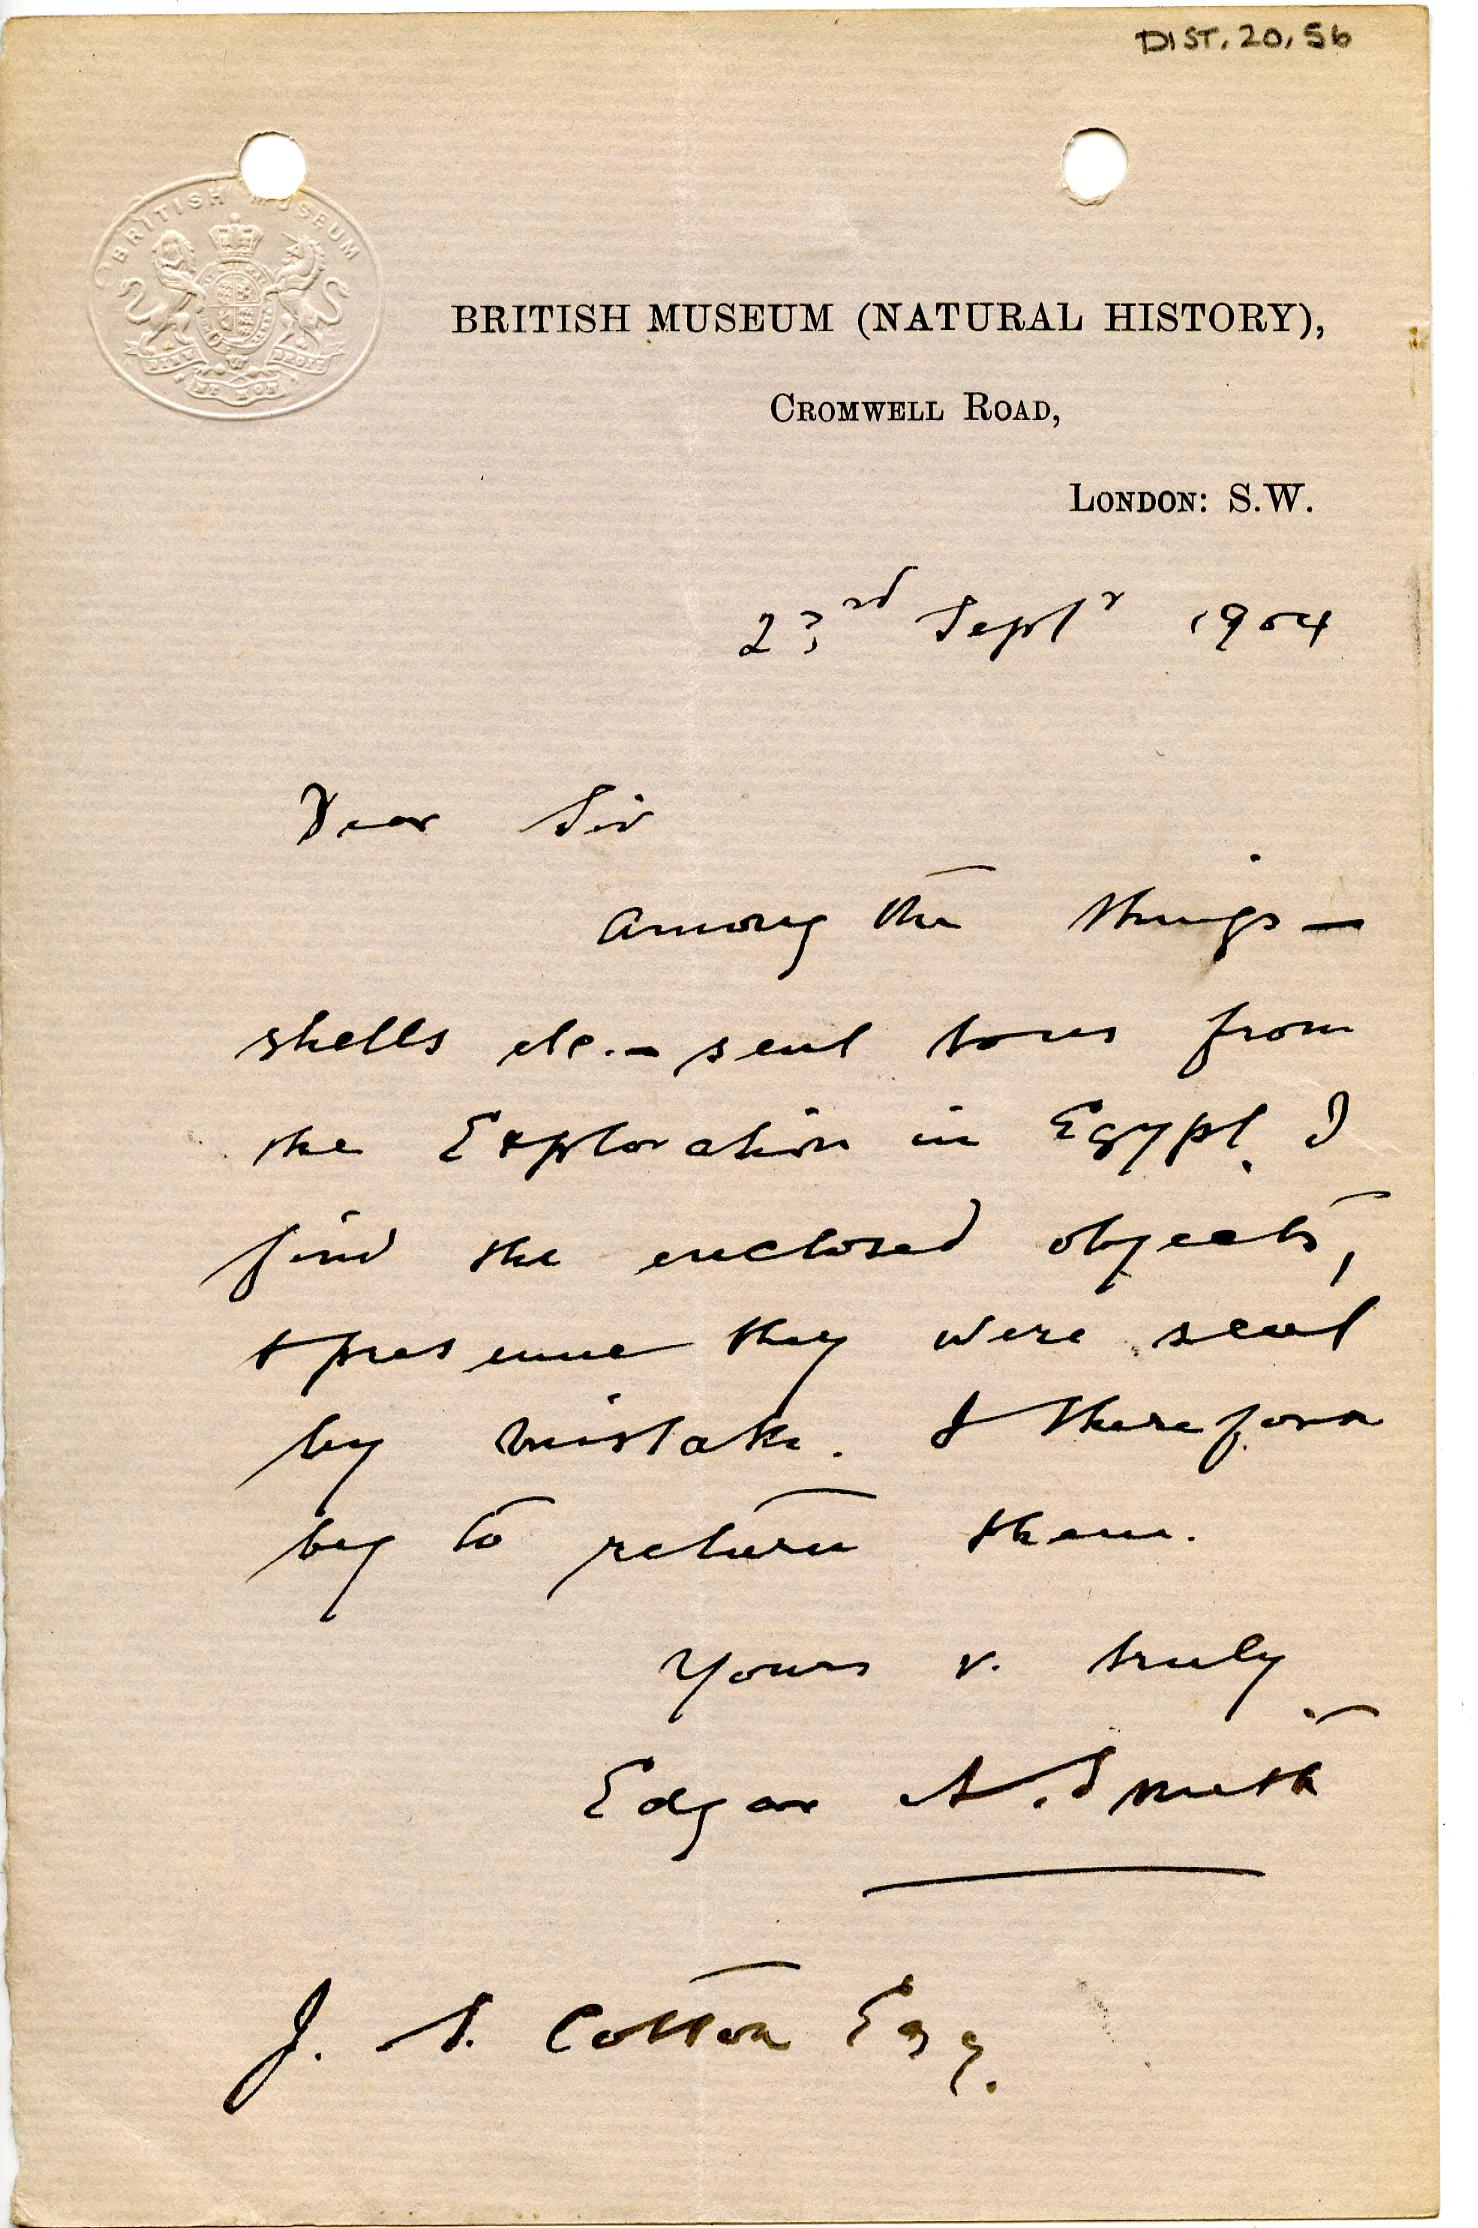 DIST. 20, 56
BRITISH MUSEUM
DIEU ET MON DROIT
BRITISH MUSEUM (NATURAL HISTORY),
CROMWELL ROAD,
LONDON: S.W.
23rd Septr 1904
Dear Sir
Among the things —
shells etc. — sent to us from
the Exploration in Egypt, I
find the enclosed objects,
& presume they were sent
by mistake. I therefore
beg to return them.
Yours v. truly
Edgar A. Smith
J. S. Cotton Esq.